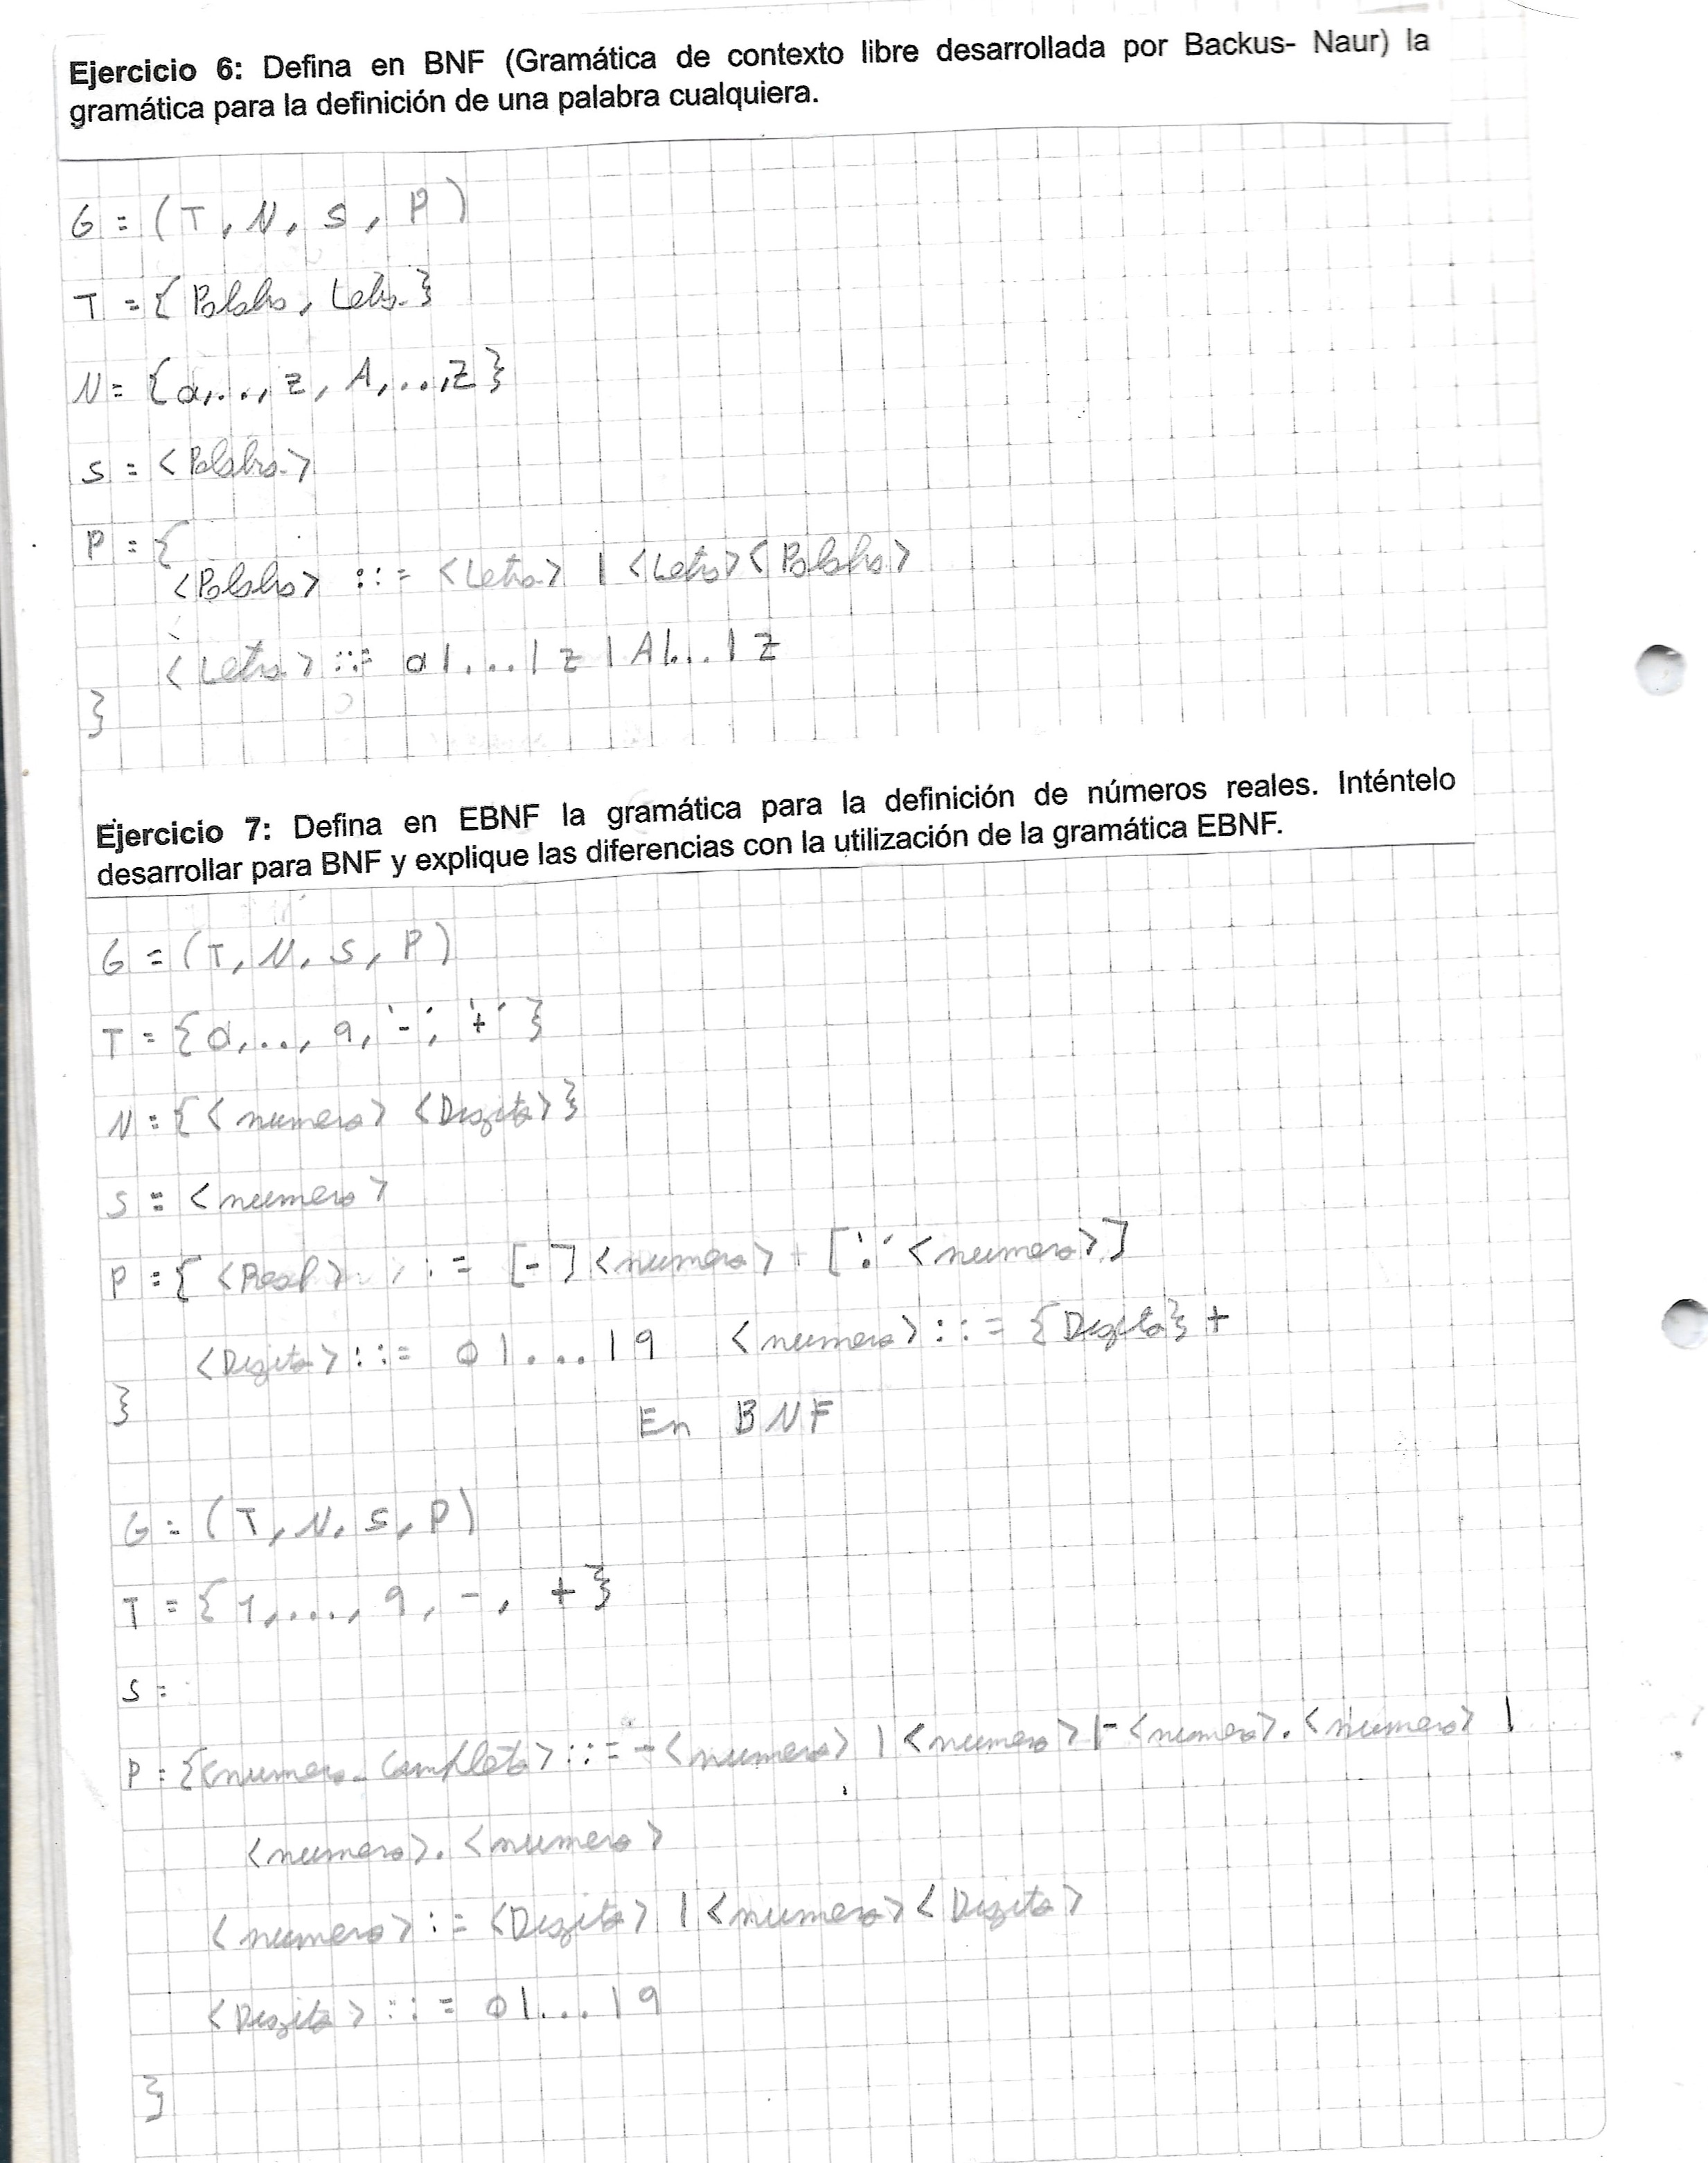 Ejercicio 6: Defina en BNF (Gramática de contexto libre desarrollada por Backus- Naur) la
gramática para la definición de una palabra cualquiera.
G = (T, N, S, P)
T = { Palabra, Letra }
N = {a,..., z, A,...,Z}
S = <Palabra>
P = {
<Palabra> ::= <Letra> | <Letra><Palabra>
<Letra> ::= a|...|z|A|...|Z
}
Ejercicio 7: Defina en EBNF la gramática para la definición de números reales. Inténtelo
desarrollar para BNF y explique las diferencias con la utilización de la gramática EBNF.
G = (T, N, S, P)
T = {0,..., 9, '-', '+'}
N = {<numero> <Digito>}
S = <numero>
P = { <Real> ::= [-]<numero> [',' <numero>]
<Digito> ::= 0|...|9 <numero> ::= {Digito}+
}
En BNF
G = (T, N, S, P)
T = {1,..., 9, -, +}
S =
P = {<numero_completo> ::= -<numero> | <numero> |-<numero>.<numero> |
<numero>.<numero>
<numero> := <Digito> | <numero><Digito>
<Digito> ::= 0|...|9
}